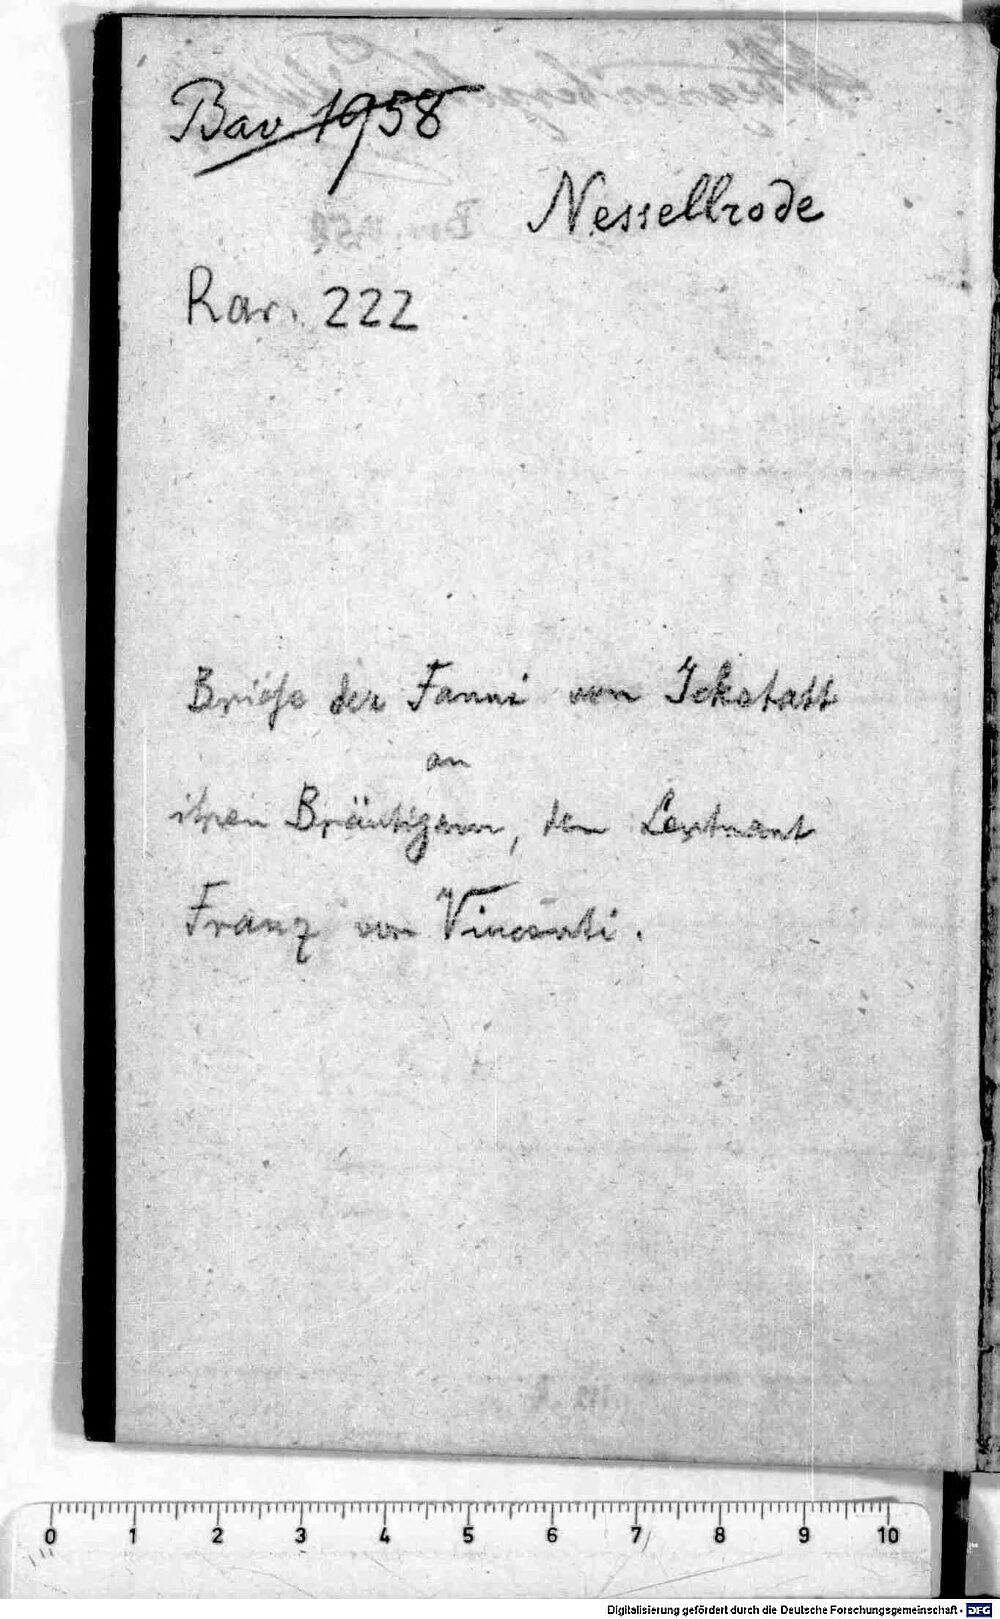 Bav 1958
Nessellrode
Rar. 222
Briefe der Fanni von Ickstatt
an
ihren Bräutigam, den Leutnant
Franz von Vincenti.
0 1 2 3 4 5 6 7 8 9 10
Digitalisierung gefördert durch die Deutsche Forschungsgemeinschaft - DFG